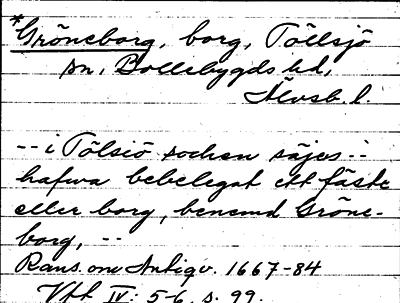 *Gröneborg, borg, Töllsjö
sn, Bollebygds hd,
Älvsb. l.
-- i Tölsiö sochen säjes --
hafwa bebelegat ett fäste
eller borg, benemd Gröne-
borg, --
Rans. om Antiqv. 1667-84
Vft IV: 5-6, s. 99.